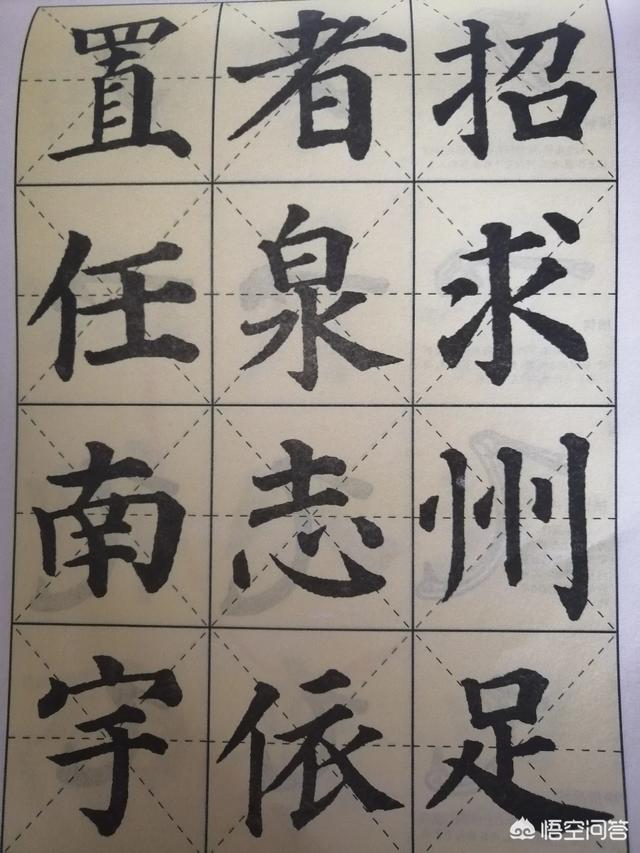 置者招
任泉求
南志州
宇依足
悟空问答